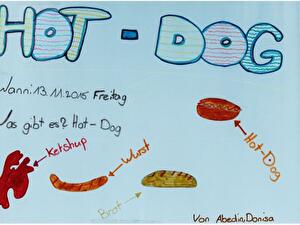 HOT - DOG
Wann: 13.11.2015 Freitag
Was gibt es? Hot-Dog
Ketchup
Wurst
Hot-Dog
Brot
Von Abedin, Donisa